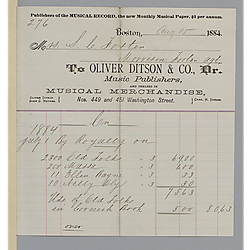 Publishers of the MUSICAL RECORD, the new Monthly Musical Paper, $2 per annum.
276
Boston, Aug 15 1884.
Mrs. S. C. Foster
To OLIVER DITSON & CO., Dr.
Music Publishers,
AND DEALERS IN
MUSICAL MERCHANDISE,
Nos. 449 and 451 Washington Street.
Oliver Ditson.
John C. Haynes.
Chas. H. Ditson.
Cr.
1884
July 1 By Royalty on
2300 Old Folks .3 6900
350 Massa .3
11 Ellen Bayne .3 33
10 Nelly Bly .3 30
7563
Use of Old Folks
in Cornish Book 5.00 8063
over